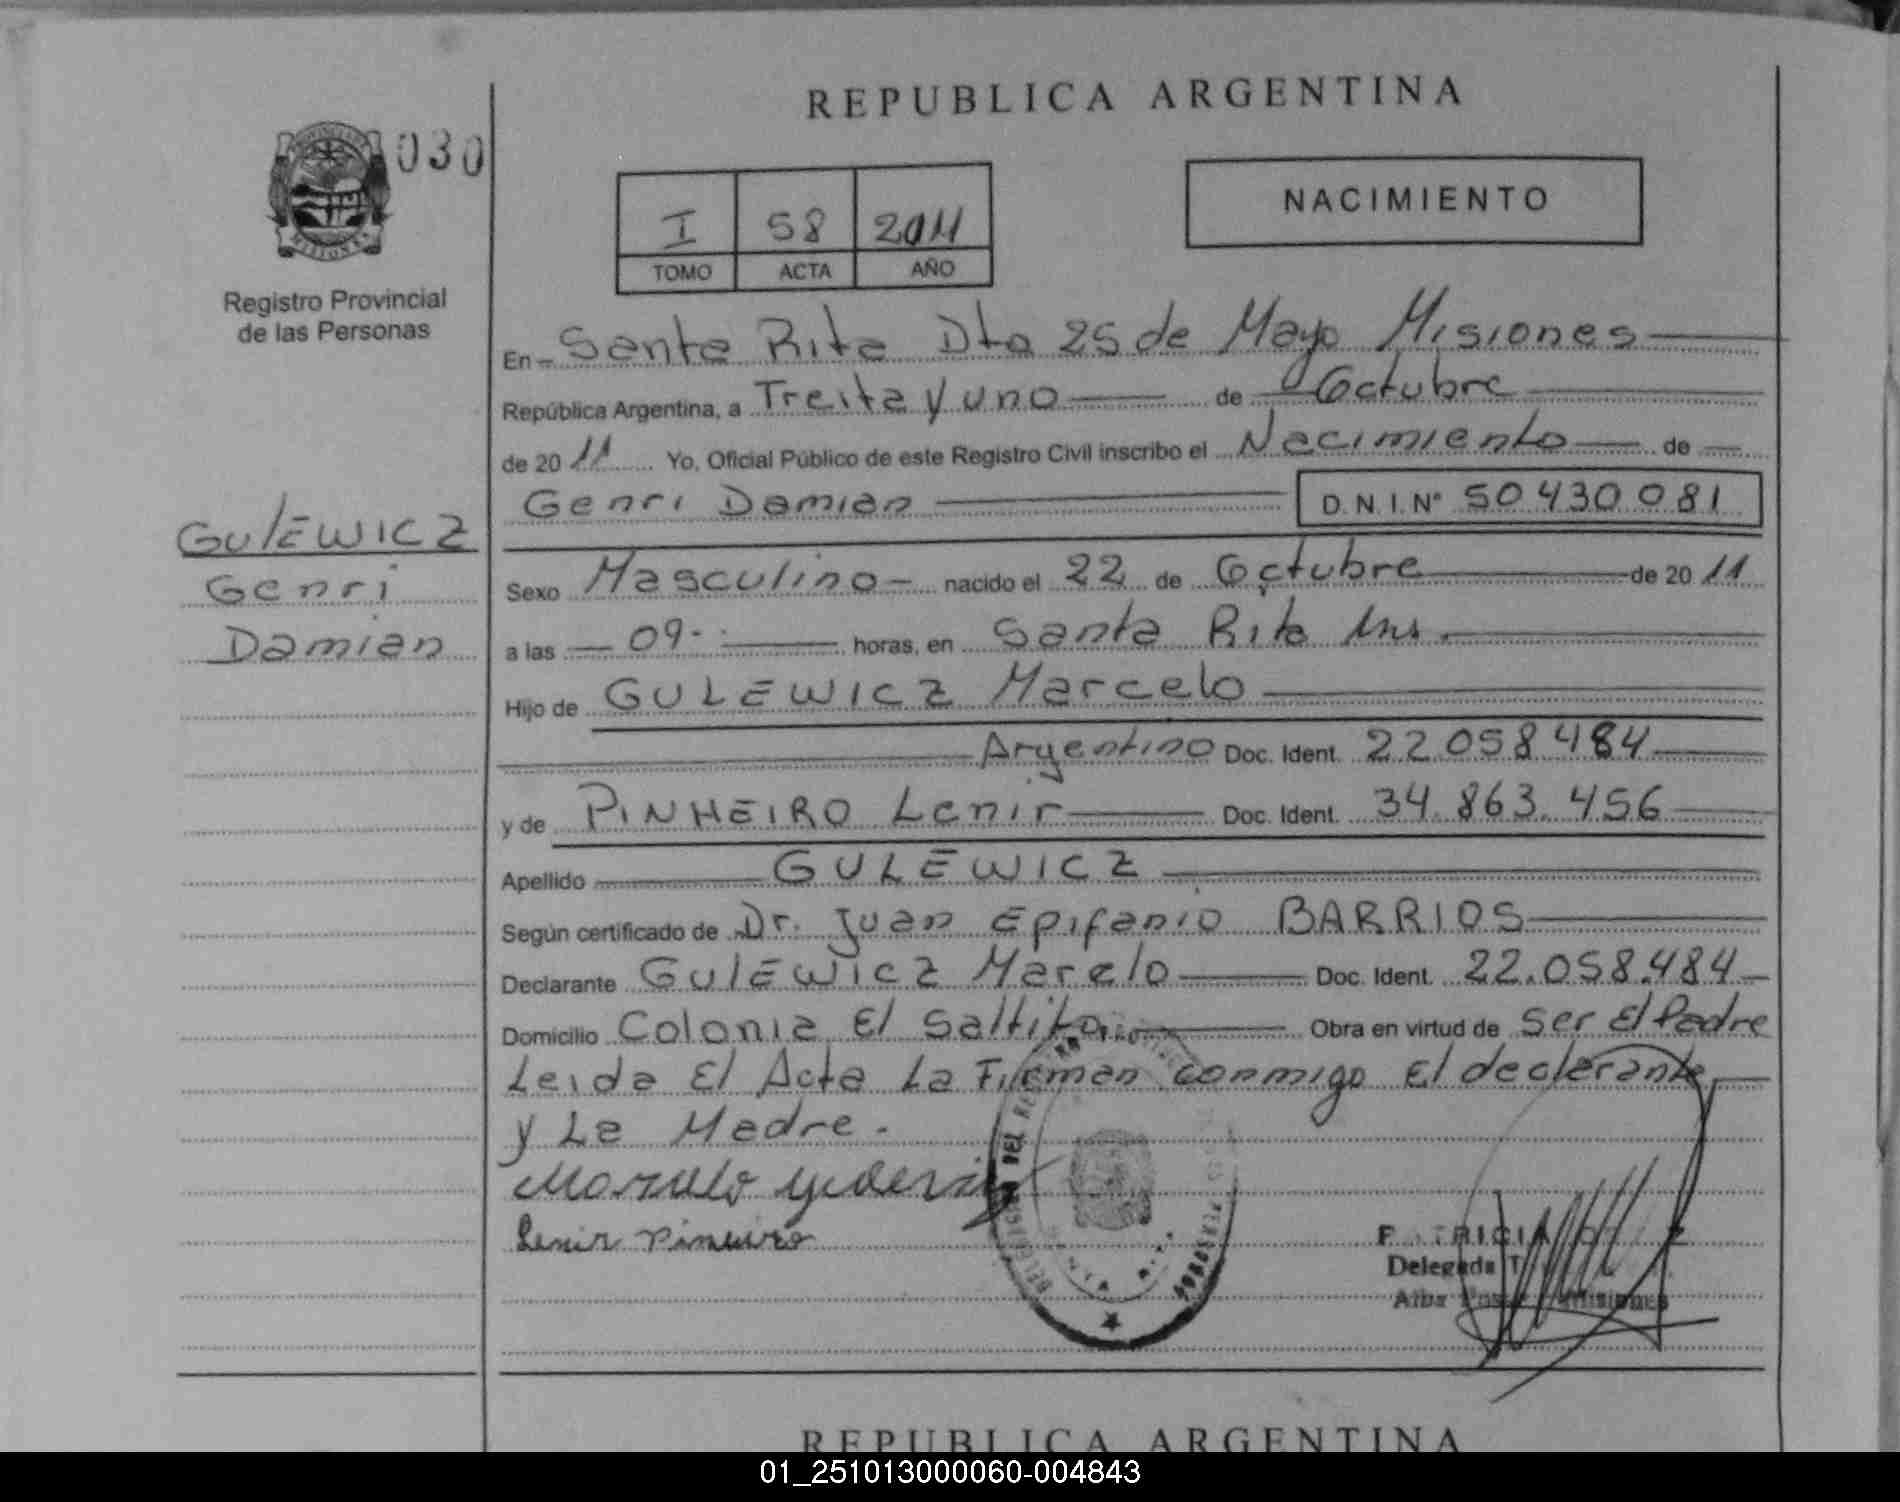 REPUBLICA ARGENTINA
030
NACIMIENTO
I 58 2011
TOMO ACTA AÑO
Registro Provincial
de las Personas
En Santa Rita Dto 25 de Mayo Misiones
República Argentina, a Treita y uno de Octubre
de 2011 Yo, Oficial Público de este Registro Civil inscribo el Nacimiento de
Genri Damian D.N.I. Nº 50 430 081
GULEWICZ
Genri
Damian
Sexo Masculino nacido el 22 de Octubre de 2011
a las 09 horas, en Santa Rita Mns.
Hijo de GULEWICZ Marcelo
Argentino Doc. Ident. 22.058.484
y de PINHEIRO Lenir Doc. Ident. 34.863.456
Apellido GULEWICZ
Según certificado de Dr. Juan Epifanio BARRIOS
Declarante GULEWICZ Marelo Doc. Ident. 22.058.484
Domicilio Colonia El Saltito Obra en virtud de Ser El Padre
Leida El Acta La Firman conmigo El declarante
y La Madre.
Lenir
DEL
Delegada
Alba Misiones
REPUBLICA ARGENTINA
01_251013000060-004843